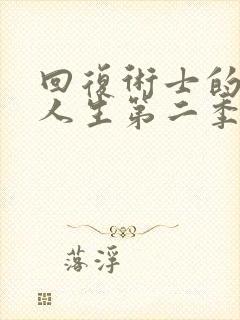 回復術士的
人生第二季
落浮